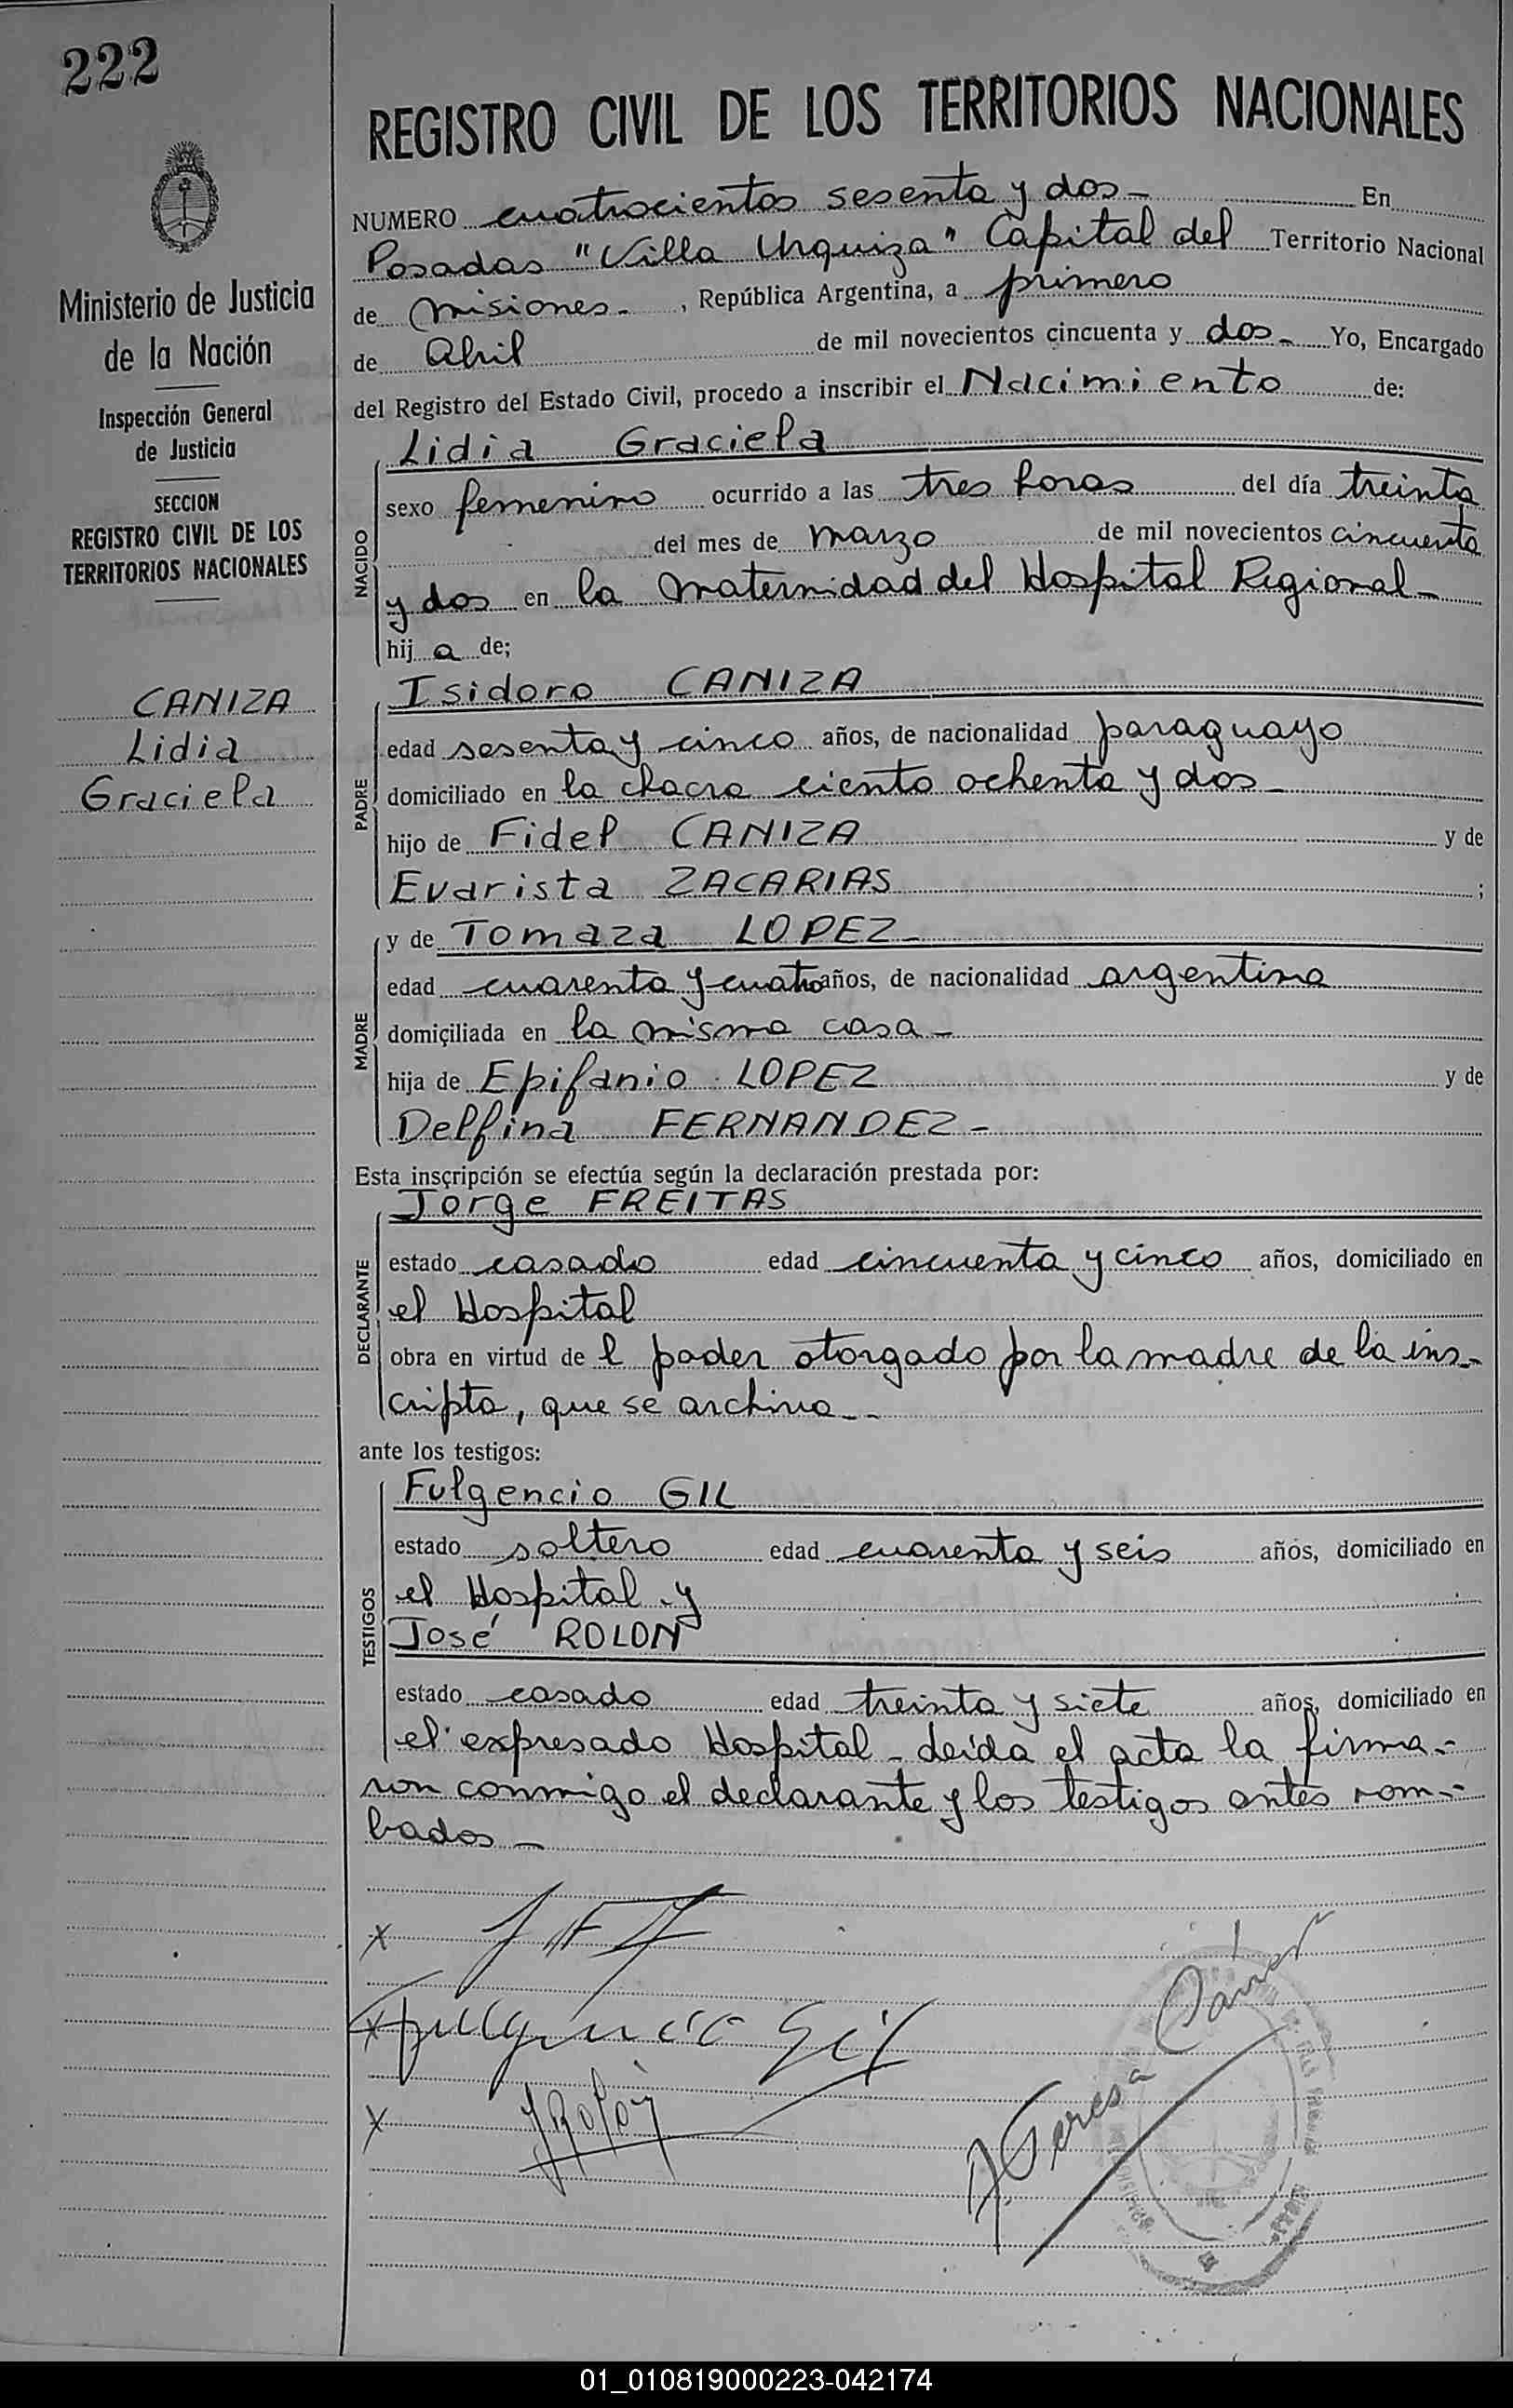 222
Ministerio de Justicia
de la Nación
Inspección General
de Justicia
SECCION
REGISTRO CIVIL DE LOS
TERRITORIOS NACIONALES
CANIZA
Lidia
Graciela
REGISTRO CIVIL DE LOS TERRITORIOS NACIONALES
NUMERO cuatrocientos sesenta y dos - En
Posadas "Villa Urquiza" Capital del Territorio Nacional
de Misiones - , República Argentina, a primero
de Abril de mil novecientos cincuenta y dos - Yo, Encargado
del Registro del Estado Civil, procedo a inscribir el Nacimiento de:
NACIDO
Lidia Graciela
sexo femenino ocurrido a las tres horas del día treinta
del mes de marzo de mil novecientos cincuenta
y dos en la Maternidad del Hospital Regional -
hij a de;
PADRE
Isidoro CANIZA
edad sesenta y cinco años, de nacionalidad paraguayo
domiciliado en la chacra ciento ochenta y dos -
hijo de Fidel CANIZA y de
Evarista ZACARIAS ;
MADRE
y de Tomaza LOPEZ -
edad cuarenta y cuatro años, de nacionalidad argentina
domiciliada en la misma casa -
hija de Epifanio LOPEZ y de
Delfina FERNANDEZ -
Esta inscripción se efectúa según la declaración prestada por:
DECLARANTE
Jorge FREITAS
estado casado edad cincuenta y cinco años, domiciliado en
el Hospital
obra en virtud de l poder otorgado por la madre de la ins-
cripta, que se archiva - -
ante los testigos:
TESTIGOS
Fulgencio GIL
estado soltero edad cuarenta y seis años, domiciliado en
el Hospital y
José ROLON
estado casado edad treinta y siete años, domiciliado en
el expresado Hospital - Leída el acta la firma-
ron conmigo el declarante y los testigos antes nom-
brados -
x
x Fulgencio Gil
x J Rolón
A. Teresa
01_010819000223-042174